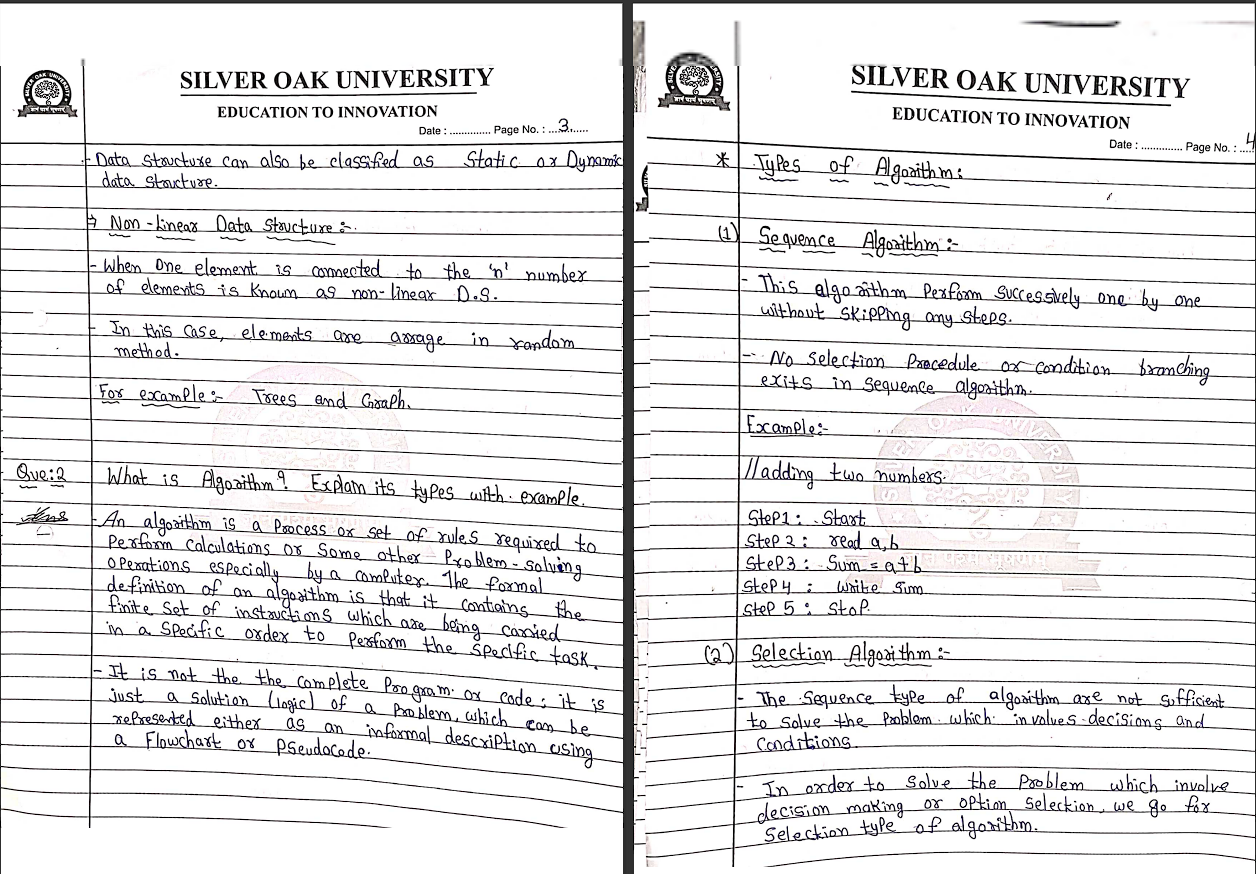 SILVER OAK UNIVERSITY
EDUCATION TO INNOVATION
Date : .............. Page No. : ...3......
- Data Structure can also be classified as Static or Dynamic
data structure.
⇒ Non-Linear Data Structure :-
- When one element is connected to the 'n' number
of elements is known as non-linear D.S.
- In this case, elements are arrage in random
method.
For example :- Trees and Graph.
Que:2 What is Algorithm? Explain its types with example.
Ans
- An algorithm is a Process or set of rules required to
Perform calculations or some other Problem-solving
operations especially by a computer. The formal
definition of an algorithm is that it contains the
finite set of instructions which are being carried
in a specific order to perform the specific task.
- It is not the the complete Program or code; it is
just a solution (logic) of a problem, which can be
represented either as an informal description using
a Flowchart or Pseudocode.
SILVER OAK UNIVERSITY
EDUCATION TO INNOVATION
Date : .............. Page No. : ....4
* Types of Algorithm :
(1) Sequence Algorithm :-
- This algorithm Perform successively one by one
without skipping any steps.
- No selection Procedure or condition branching
exits in sequence algorithm.
Example:-
//adding two numbers.
Step1 : Start
Step 2 : read a,b
Step3 : Sum = a+b
Step 4 : write Sum
Step 5 : Stop.
(2) Selection Algorithm :-
- The sequence type of algorithm are not sufficient
to solve the problem which involves decisions and
Conditions.
- In order to solve the Problem which involve
decision making or option selection, we go for
Selection type of algorithm.